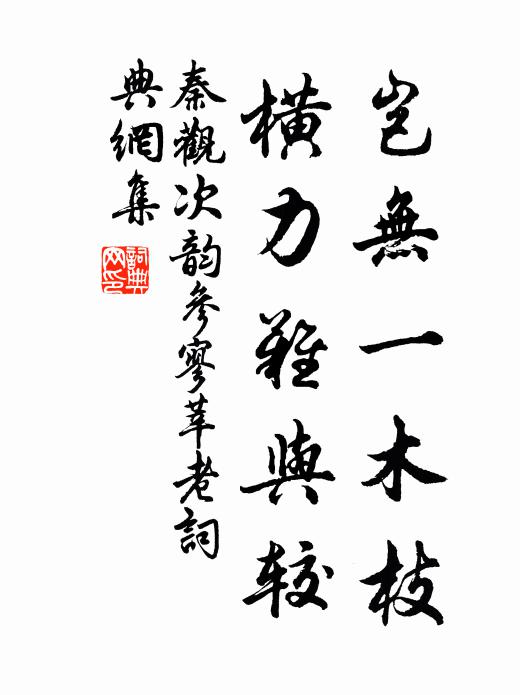 豈無一木枝
橫力難與較
秦觀次韵參寥莘老詞
典網集
詞典
网印